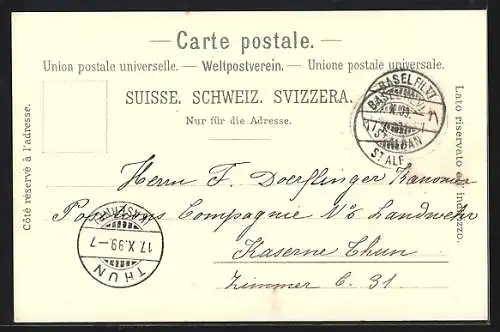 Carte postale.
Union postale universelle. — Weltpostverein. — Unione postale universale.
SUISSE. SCHWEIZ. SVIZZERA.
Nur für die Adresse.
Côté réservé à l'adresse.
Lato riservato all'indirizzo.
BASEL FIL. ST. ALBAN
Herrn F. Doerflinger Kanonier
Positions Compagnie No 6 Landwehr
Kaserne Thun
Zimmer C. 31.
17. X. 99.–7
THUN